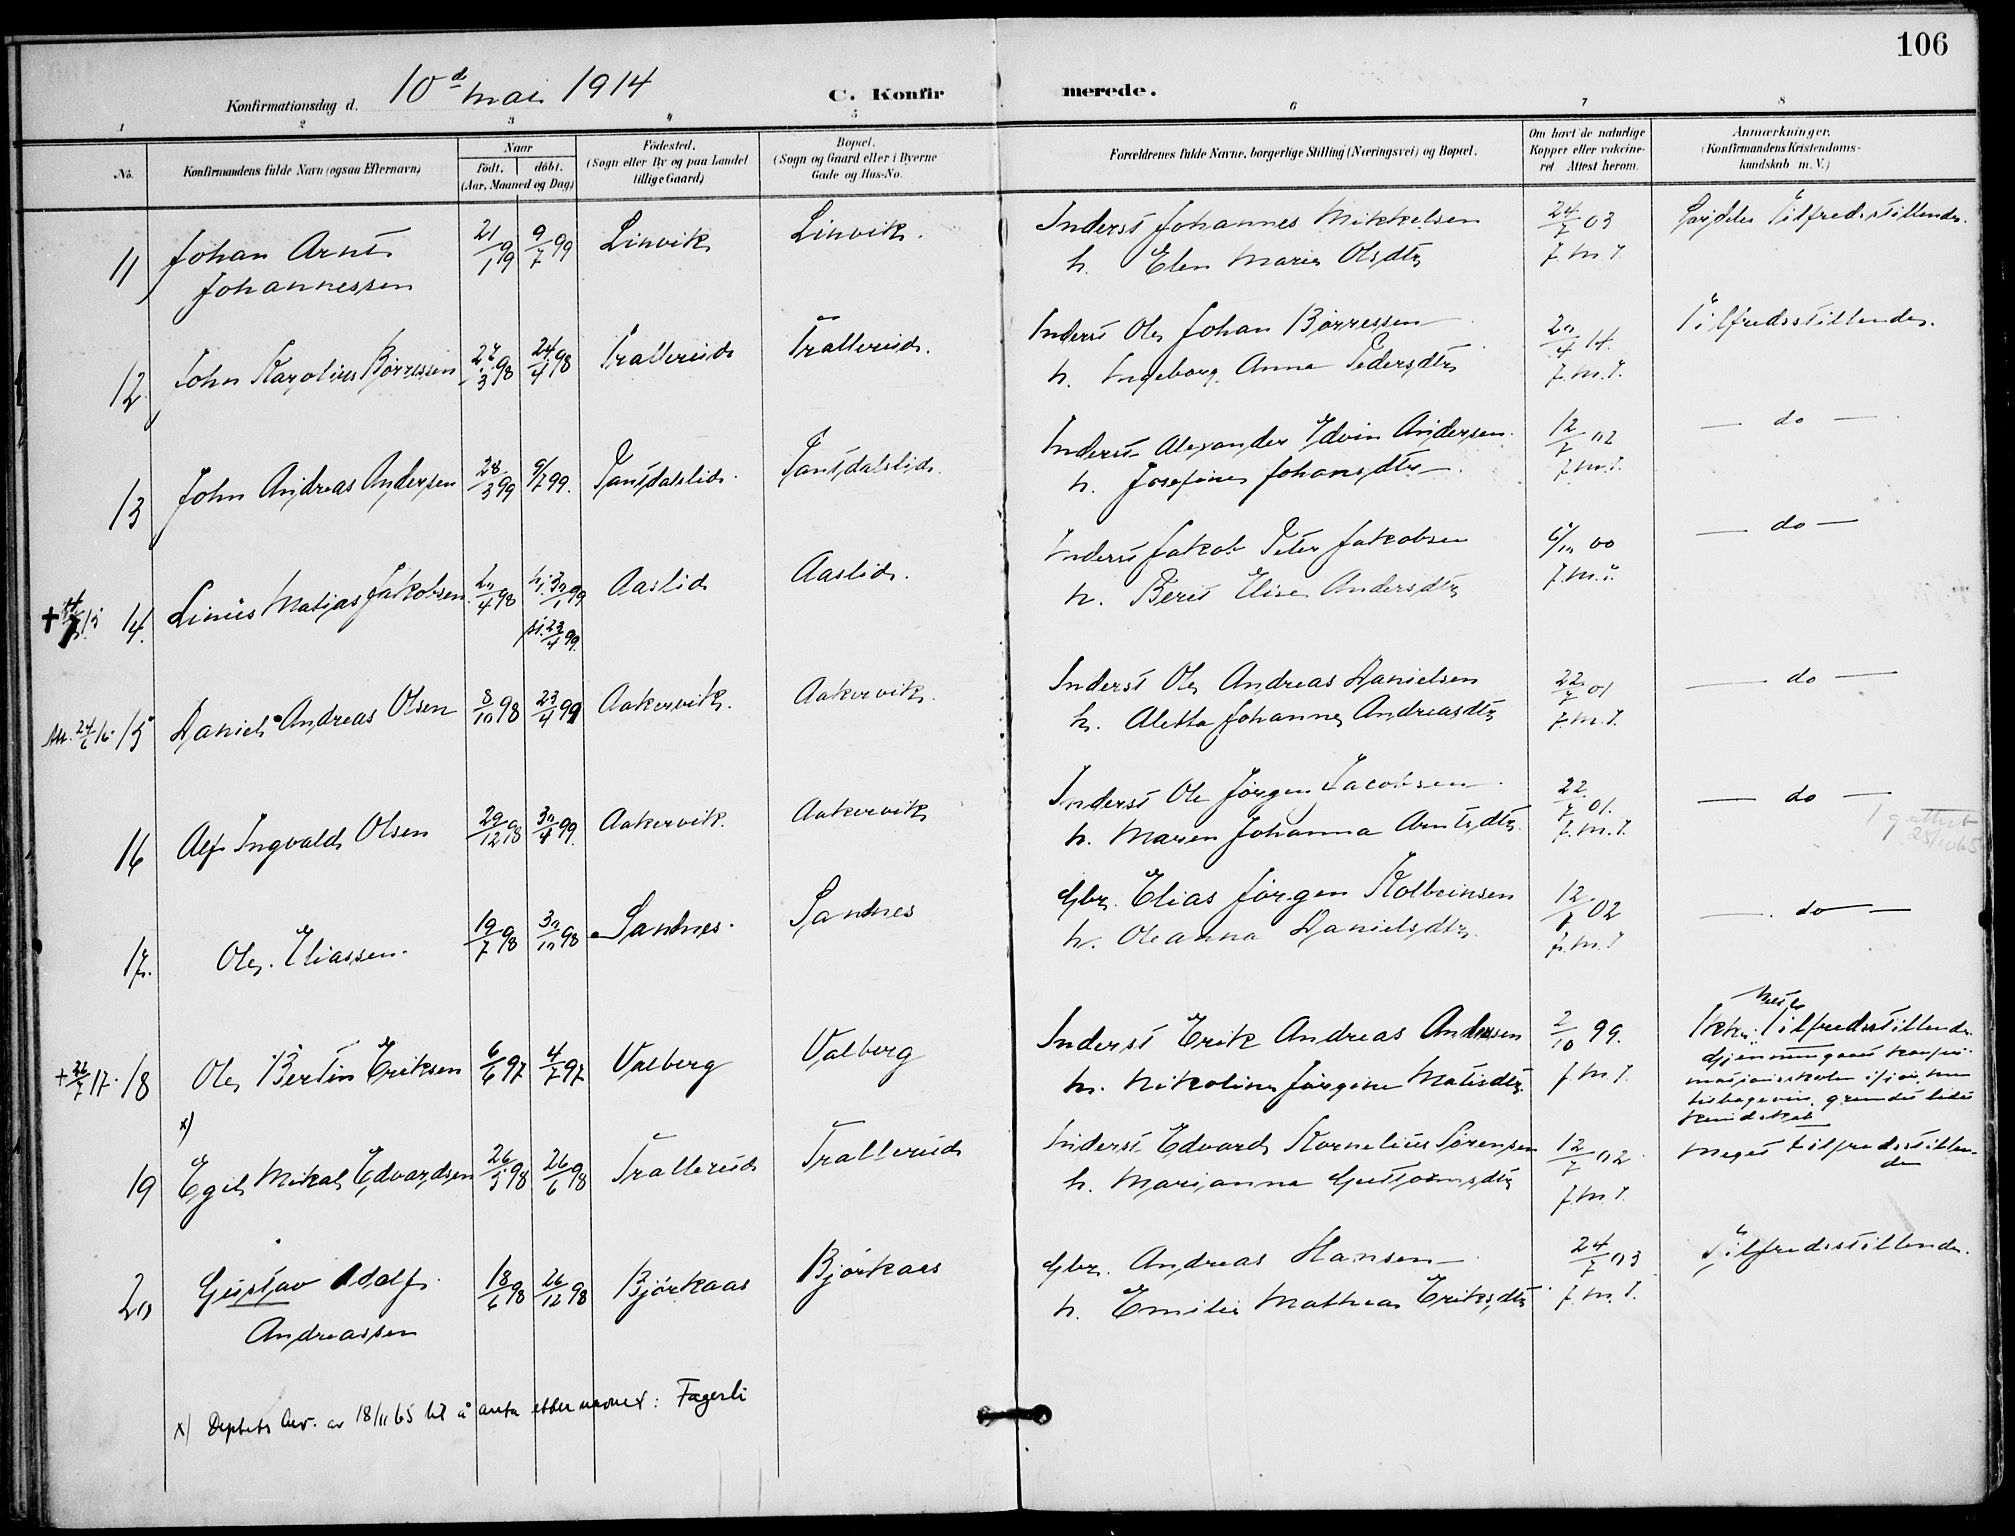 106
Konfirmationsdag d. 10d mai 1914
C. Konfirmerede.
1 2 3 4 5 6 7 8
No.
Konfirmandens fulde Navn (ogsaa Efternavn)
Naar
født. døbt.
(Aar, Maaned og Dag)
Fødested.
(Sogn eller By og paa Landet
tillige Gaard)
Bopæl.
(Sogn og Gaard eller i Byerne
Gade og Hus-No.
Forældrenes fulde Navne, borgerlige Stilling (Næringsvei) og Bopæl.
Om havt de naturlige
Kopper eller vakcineret. Attest herom.
Anmærkninger.
(Konfirmandens Kristendoms-
kundskab m. V.)
11 Johan Arnt 21/1 99 9/7 99 Linvik Linvik. Inderst Johannes Mikkelsen 24/7 03 Tilfredsstillende.
Johannessen h. Elen Marie Olsdtr
12 John Karolius Børressen 27/3 98 24/4 98 Trallerud Trallerud. Inderst Ole Johan Børressen 20/4 14. Tilfredsstillende.
h. Ingeborg Anna Pedersdtr
13 John Andreas Andersen 28/3 99 9/7 99. Inderst Alexander Edvin Andersen 12/7 02 — do —
h. Josefine Johansdtr
14. Linus Matias Jakobsen 20/4 98 hj. 30/1 99 Aaslid Aaslid. Inderst Jakob Peter Jakobsen 6/10 00 — do —
st. 23/4 99. h. Berit Elise Andersdtr
15 Daniel Andreas Olsen 8/10 98 23/4 99 Aakervik. Aakervik. Inderst Ole Andreas Danielsen 22/7 01 — do —
h. Aletta Johanna Andreasdtr
16 Alf Ingvald Olsen 29/12 98 30/4 99 Aakervik. Aakervik Inderst Ole Jørgen Jacobsen 22/7 01. — do —
h. Maren Johanna Arntsdtr.
17. Ole Eliassen. 19/7 98 30/10 98 Sandnes. Sandnes Gbr. Elias Jørgen Kolbeinsen 12/7 02 — do —
h. Oleanna Danielsdtr.
+ 26/7 17. 18 Ole Bertin Eriksen 6/6 97 4/7 97 Valberg Valberg Inderst Erik Andreas Andersen 2/10 99. Ikke Tilfredsstillende
h. Nikoline Jørgine Matisdtr
x)
19 Egil Mikal Edvardsen 26/5 98 26/6 98 Trallerud Trallerud Inderst Edvard Kornelius Sørensen 12/7 02 Meget tilfredsstillen-
de
h. Marianna Guttormsdtr
20 Gustav Adolf 18/6 98 26/12 98 Bjørkaas Bjørkaas Gbr. Andreas Hansen 24/7 03 Tilfredsstillende.
Andreassen h. Emilie Mathea Eriksdtr
x) Deptets bev. av 18/11 65 til å anta etternavnet: Fagerli